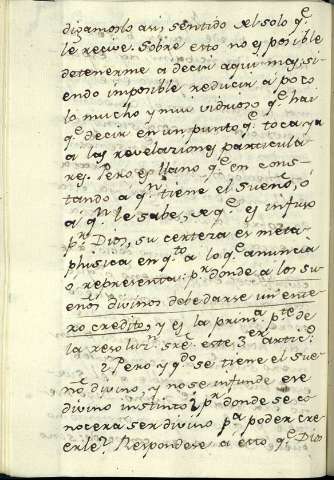 digamoslo asi sentido del solo q.e
le recive. Sobre esto no es posible
detenerme a decir aqui mas, si-
endo imposible reducir a poco
lo mucho y mui vidrioso q.e hai
q.e decir en un punto q.e toca ya
a las revelaciones particula-
res. Pero es llano q.e en cons-
tando a q.n tiene el sueño, ó
a q.n le sabe, q.e es infuso
p.r Dios, su certeza es meta-
phisica en q.to a lo q.e anuncia
o representa: p.r donde a los su-
eños divinos debe darse un ente-
ro credito, y es la prim.a p.te de
la resoluz.n sre. este 3.er artic.o
? Pero y q.do se tiene el sue-
ño divino, y no se infunde ese
divino instinto? p.r donde se co-
nocera ser divino p.a poder cre-
erle? Respondese a esto q.e Dios